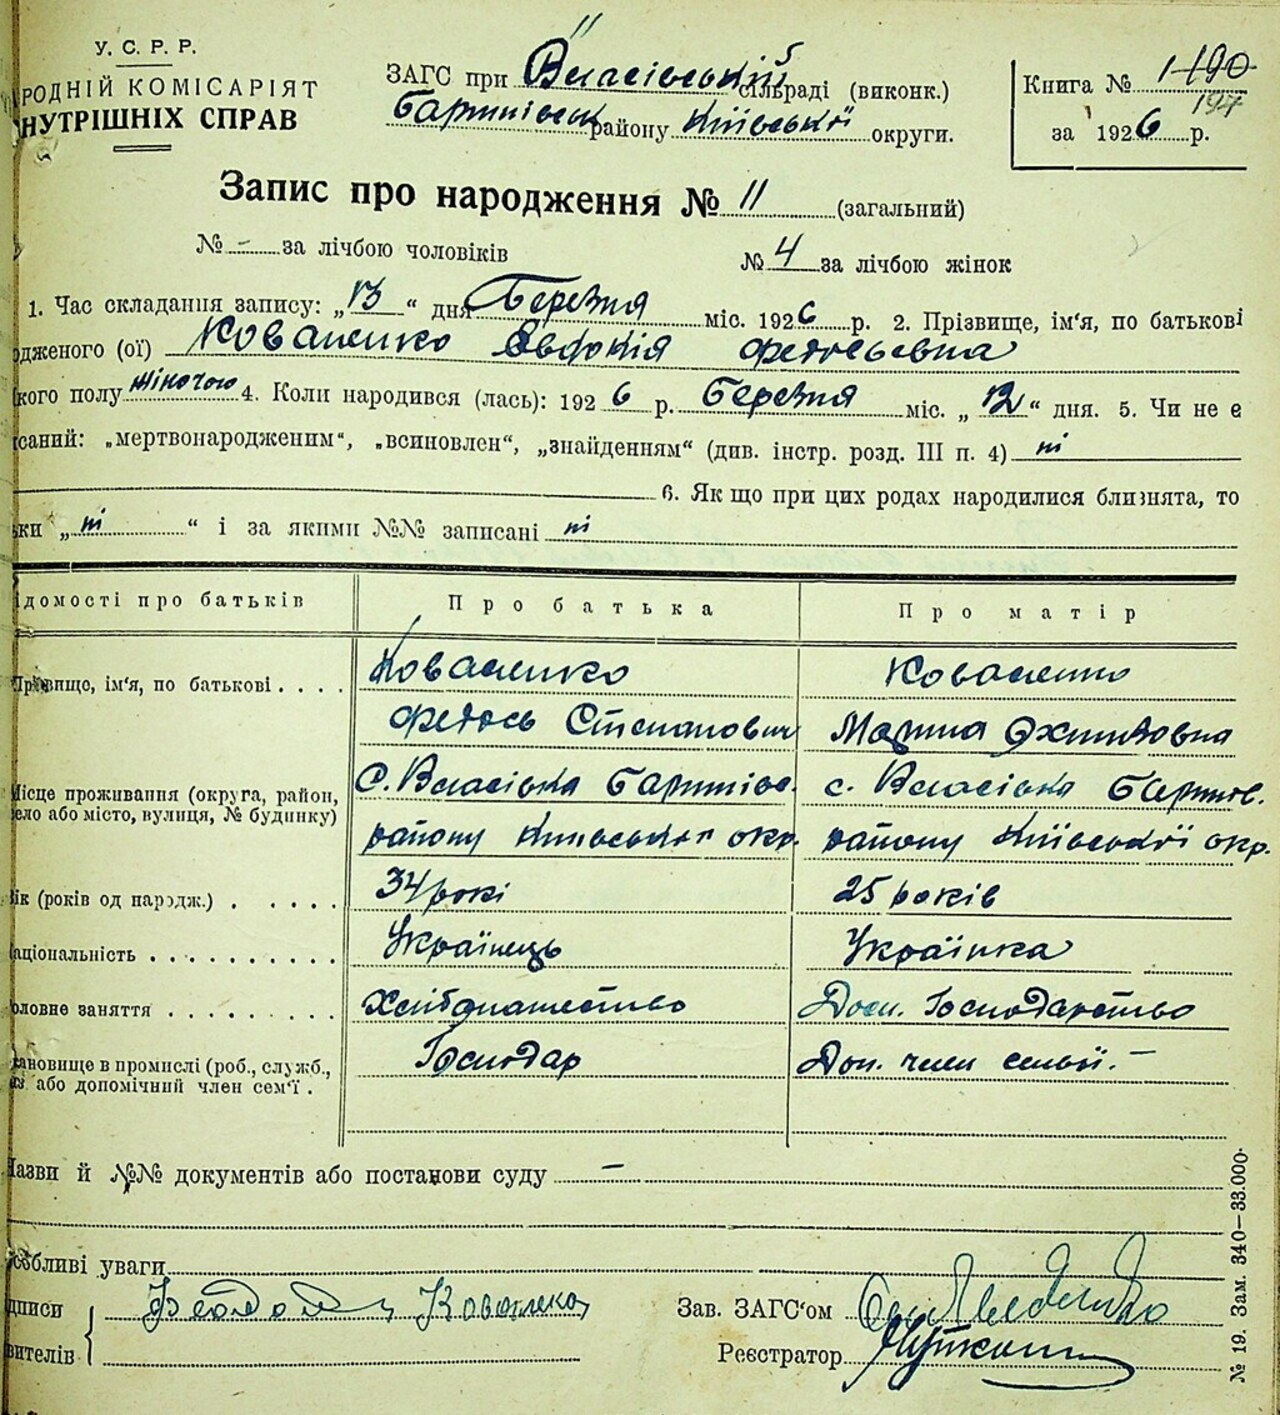 11
У. С. Р. Р.
РОДНІЙ КОМІСАРІЯТ
НУТРІШНІХ СПРАВ
ЗАГС при Власівській сільраді (виконк.)
Баришівськ району Київської округи.
Книга № 1190
197
за 1926 р.
Запис про народження № 11 (загальний)
№ - за лічбою чоловіків № 4 за лічбою жінок
1. Час складання запису: „13“ дня Березня міс. 1926 р. 2. Прізвище, ім'я, по батькові
одженого (ої) Коваленко Явдокія Федосьевна
кого полу жіночого 4. Коли народився (лась): 1926 р. Березня міс. „12“ дня. 5. Чи не є
исаний: „мертвонародженим“, „всиновлен“, „знайденням“ (див. інстр. розд. III п. 4) ні
6. Як що при цих родах народилися близнята, то
ьки „ні“ і за якими №№ записані ні
ідомості про батьків Про батька Про матір
Прізвище, ім'я, по батькові Коваленко Коваленко
Федось Степанович Марина
Місце проживання (округа, район, с. Власівка Баришівс. с. Власівка Баришов.
село або місто, вулиця, № будинку) району Київської окр. району Київської окр.
Вік (років од народж.) 34 рокі 25 років
Національність Українець Українка
оловне заняття Хліборпашество Дом. Господарство
тановище в промислі (роб., служб., Господар Доп. член семьї. –
аз або допомічний член сем'ї.
Назви й №№ документів або постанови суду –
Особливі уваги
дписи Коваленко Зав. ЗАГС'ом
вителів Реєстратор
№ 19. Зам. 340—33.000.